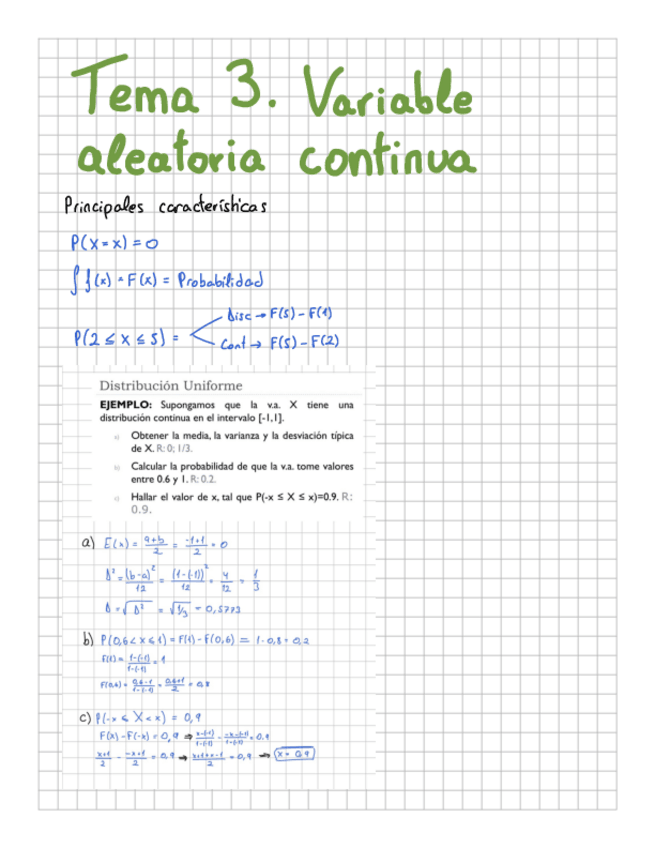 Tema 3. Variable
aleatoria continua
Principales características
P(X = x) = 0
∫ f(x) = F(x) = Probabilidad
P(2 ≤ X ≤ 5) =
Disc → F(5) - F(1)
Cont → F(5) - F(2)
Distribución Uniforme
EJEMPLO: Supongamos que la v.a. X tiene una
distribución continua en el intervalo [-1,1].
a) Obtener la media, la varianza y la desviación típica
de X. R: 0; 1/3.
b) Calcular la probabilidad de que la v.a. tome valores
entre 0.6 y 1. R: 0.2.
c) Hallar el valor de x, tal que P(-x ≤ X ≤ x)=0.9. R:
0.9.
a) E(x) = (a+b)/2 = (-1+1)/2 = 0
Δ² = (b-a)²/12 = (1-(-1))²/12 = 4/12 = 1/3
Δ = √Δ² = √1/3 = 0,5773
b) P(0,6 < x ≤ 1) = F(1) - F(0,6) = 1 - 0,8 = 0,2
F(1) = (1-(-1))/(1-(-1)) = 1
F(0,6) = (0,6-1)/(1-(-1)) = (0,6+1)/2 = 0,8
c) P(-x ≤ X < x) = 0,9
F(x) - F(-x) = 0,9 ⇒ (x-(-1))/(1-(-1)) - (-x-(-1))/(1-(-1)) = 0,9
(x+1)/2 - (-x+1)/2 = 0,9 → (x+1+x-1)/2 = 0,9 → x = 0,9